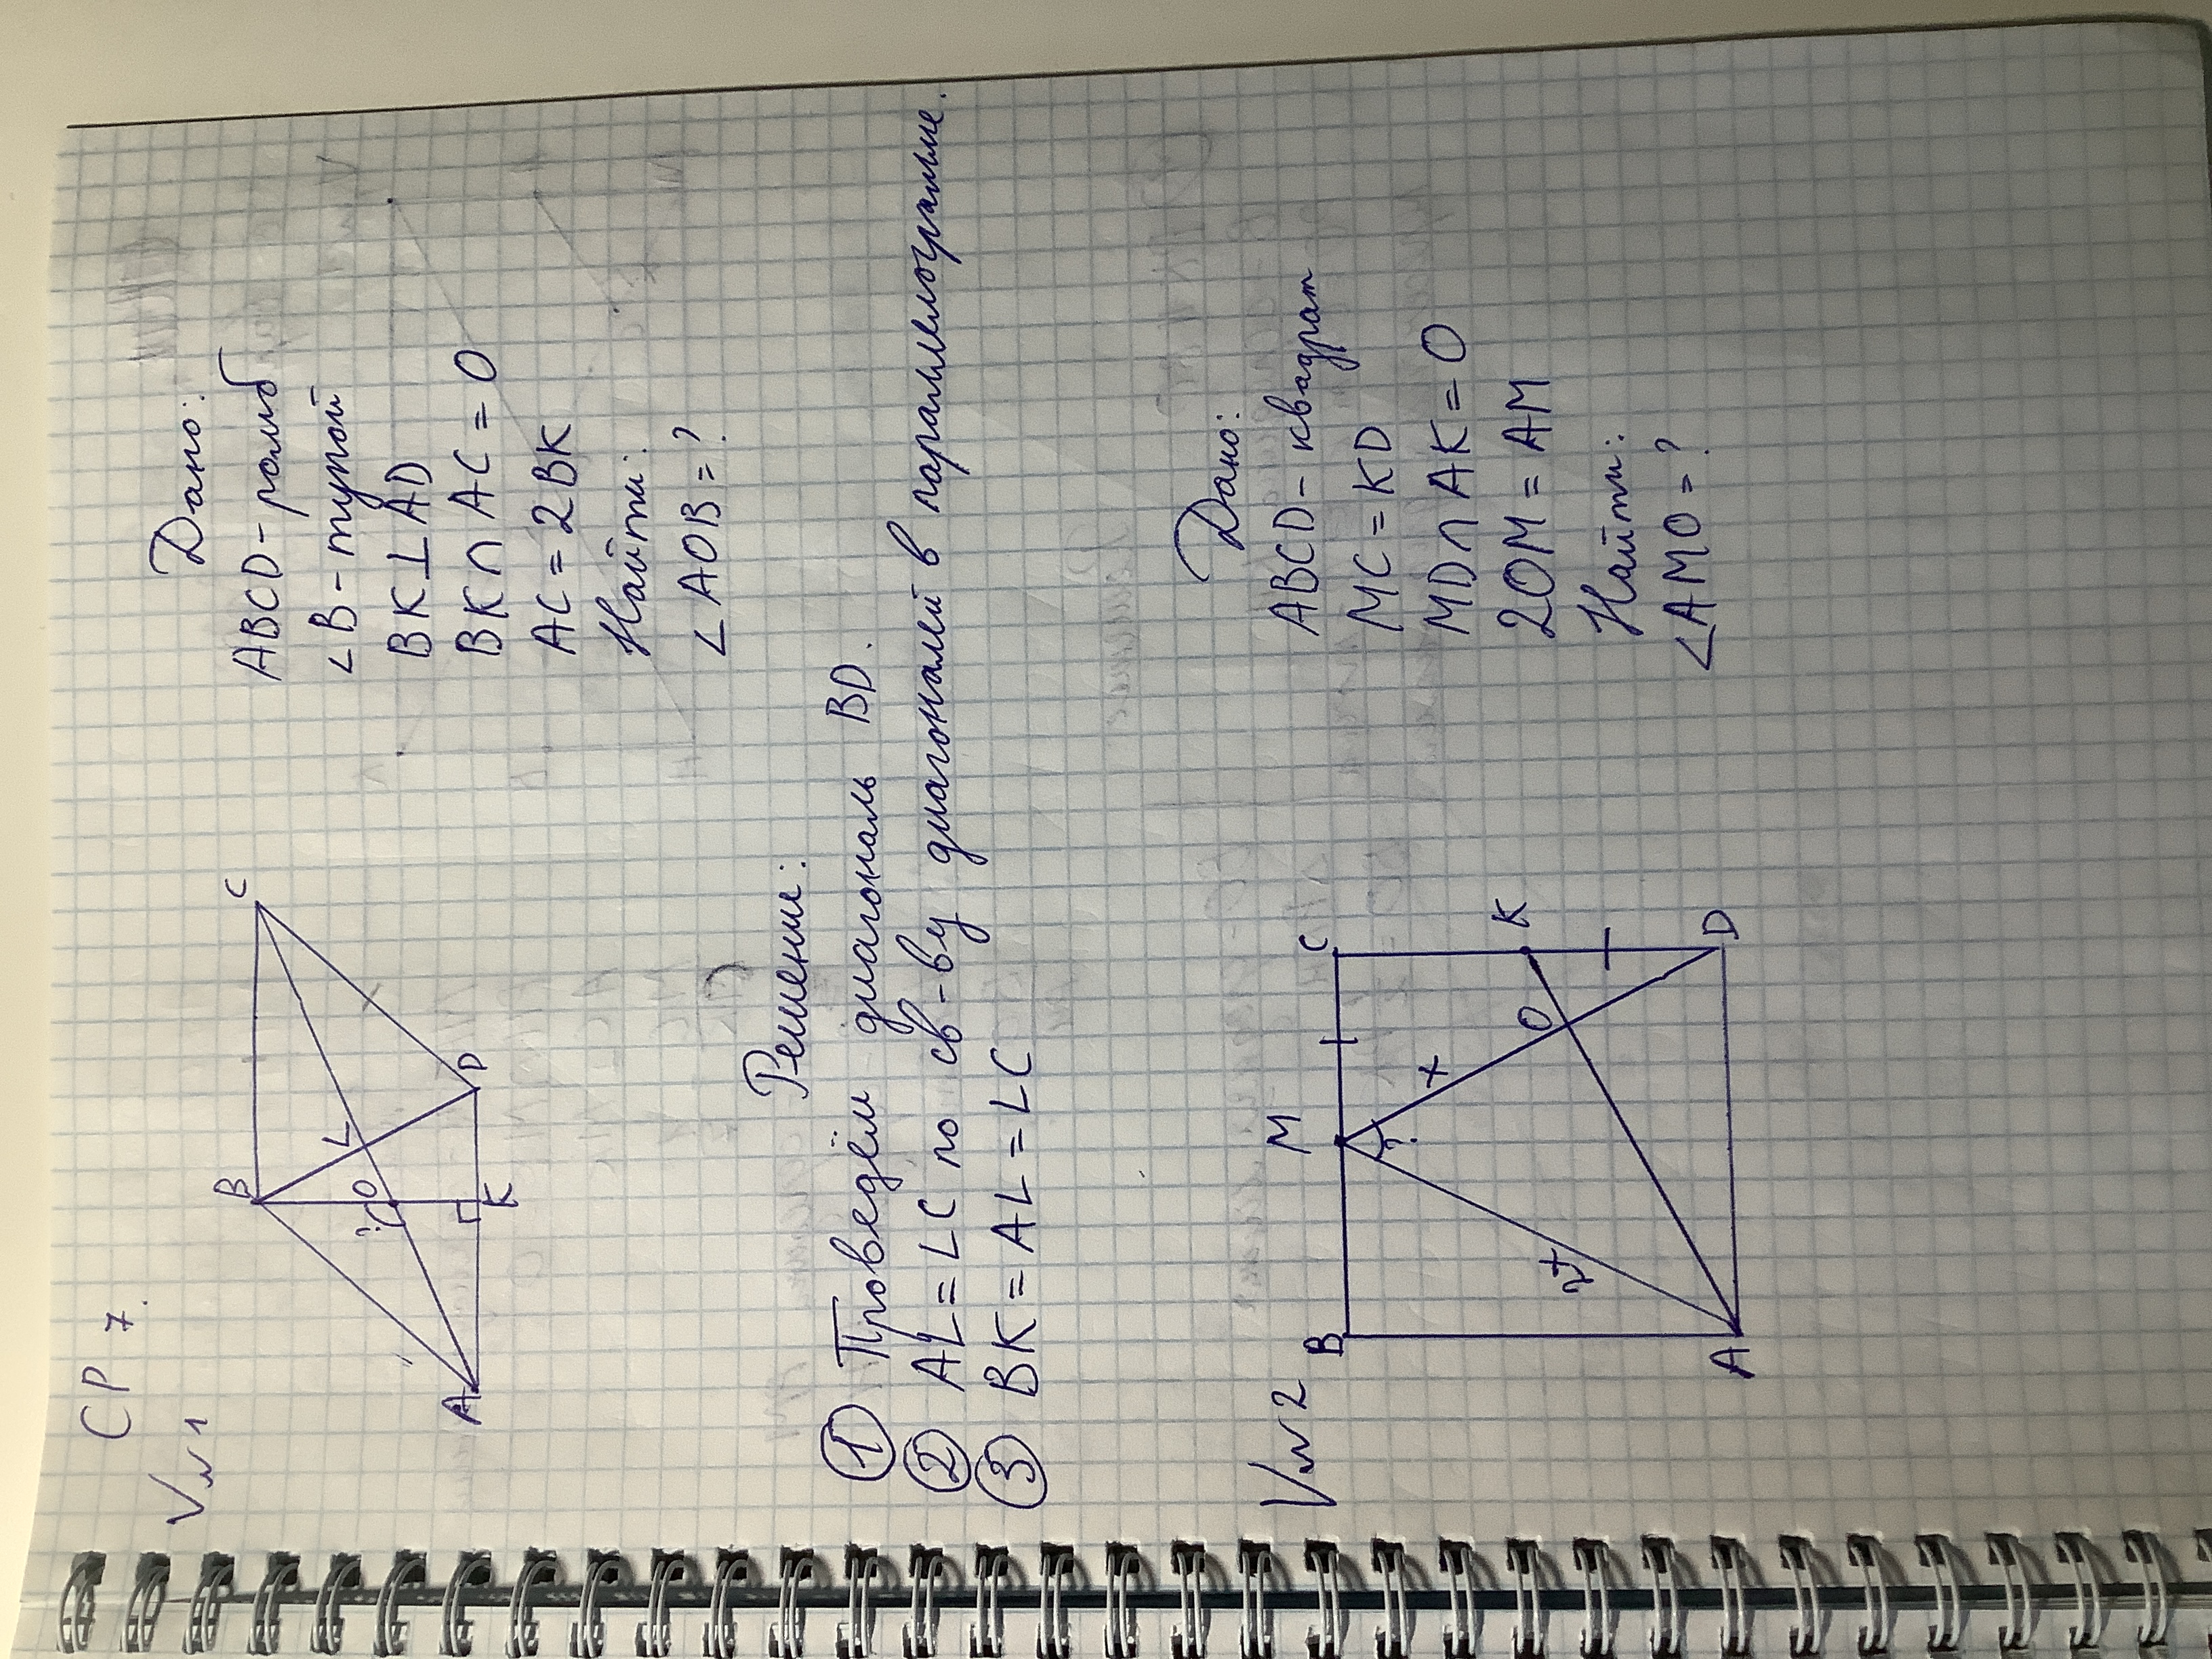 СР 7.
V№1
B
C
L
? O
A
K
D
Дано:
ABCD - ромб
∠B - тупой
BK⊥AD
BK∩AC = O
AC = 2BK
Найти:
∠AOB = ?
Решение:
① Проведём диагональ BD.
② AL = LC по св-ву диагоналей в параллелограмме.
③ BK = AL = LC
V№2
B
M
C
?
x
2x
O
K
A
D
Дано:
ABCD - квадрат
MC = KD
MD∩AK = O
2OM = AM
Найти:
∠AMO = ?